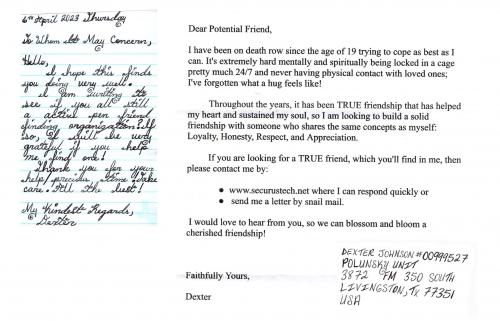 6th April 2023 Thursday
To Whom It May Concern,
Hello,
I hope this finds
you doing very well.
I am writing to
see if you all still
a active pen friend
finding organization. If
so, I will be very
grateful if you help
me find one!
Thank you for your
help/precious time. Take
care. All the best!
My Kindest Regards,
Dexter
Dear Potential Friend,
I have been on death row since the age of 19 trying to cope as best as I
can. It's extremely hard mentally and spiritually being locked in a cage
pretty much 24/7 and never having physical contact with loved ones;
I've forgotten what a hug feels like!
Throughout the years, it has been TRUE friendship that has helped
my heart and sustained my soul, so I am looking to build a solid
friendship with someone who shares the same concepts as myself:
Loyalty, Honesty, Respect, and Appreciation.
If you are looking for a TRUE friend, which you'll find in me, then
please contact me by:
• www.securustech.net where I can respond quickly or
• send me a letter by snail mail.
I would love to hear from you, so we can blossom and bloom a
cherished friendship!
Faithfully Yours,
Dexter
DEXTER JOHNSON #00999527
POLUNSKY UNIT
3872 FM 350 SOUTH
LIVINGSTON, TX 77351
USA